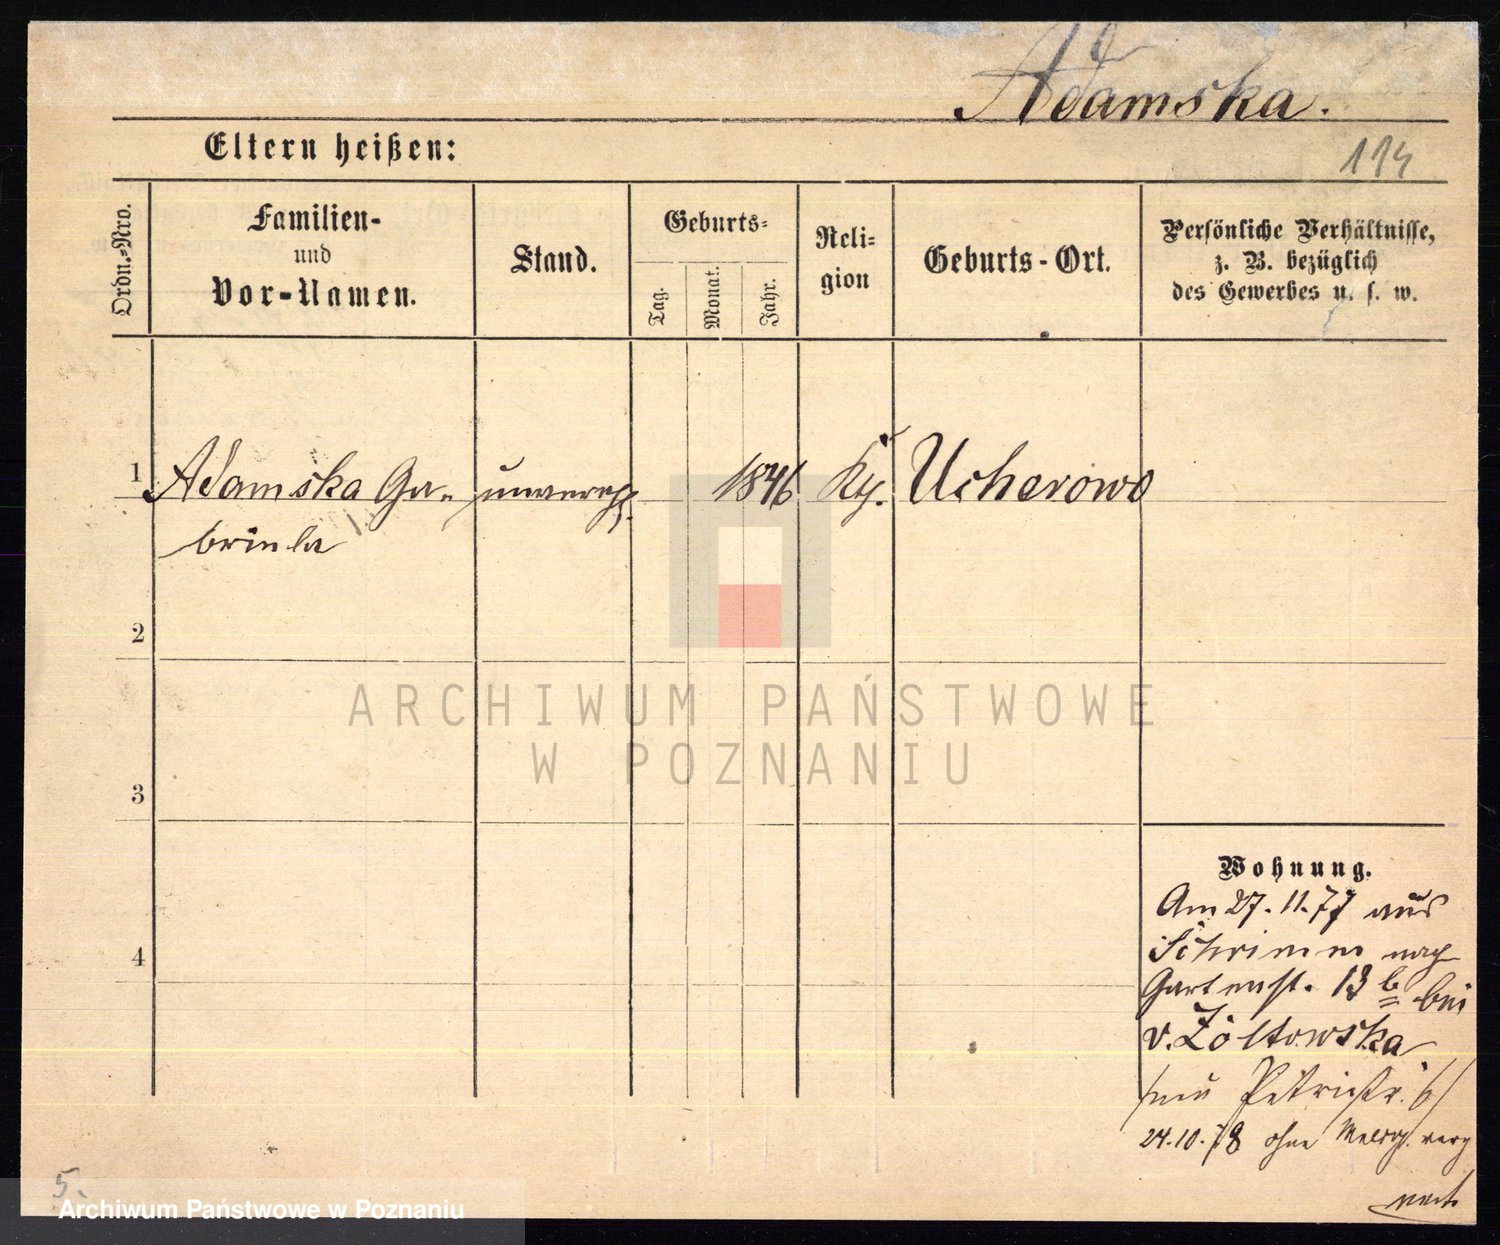 Adamska.
Eltern heißen:
114
Ordn.-Nro.
Familien-
und
Vor-Namen.
Stand.
Geburts-
Tag.
Monat.
Jahr.
Reli-
gion
Geburts-Ort.
Persönliche Verhältnisse,
z. B. bezüglich
des Gewerbes u. s. w.
1
Adamska Ga-
briela
unvereh.
1846
Ucherowo
2
3
4
ARCHIWUM PAŃSTWOWE
W POZNANIU
Wohnung.
Am 27.11.77 aus
Schrimm nach
Gartenst. 13 b bei
v. Żółtowska
Petristr. 6/
24.10.78 ohne
5.
Archiwum Państwowe w Poznaniu